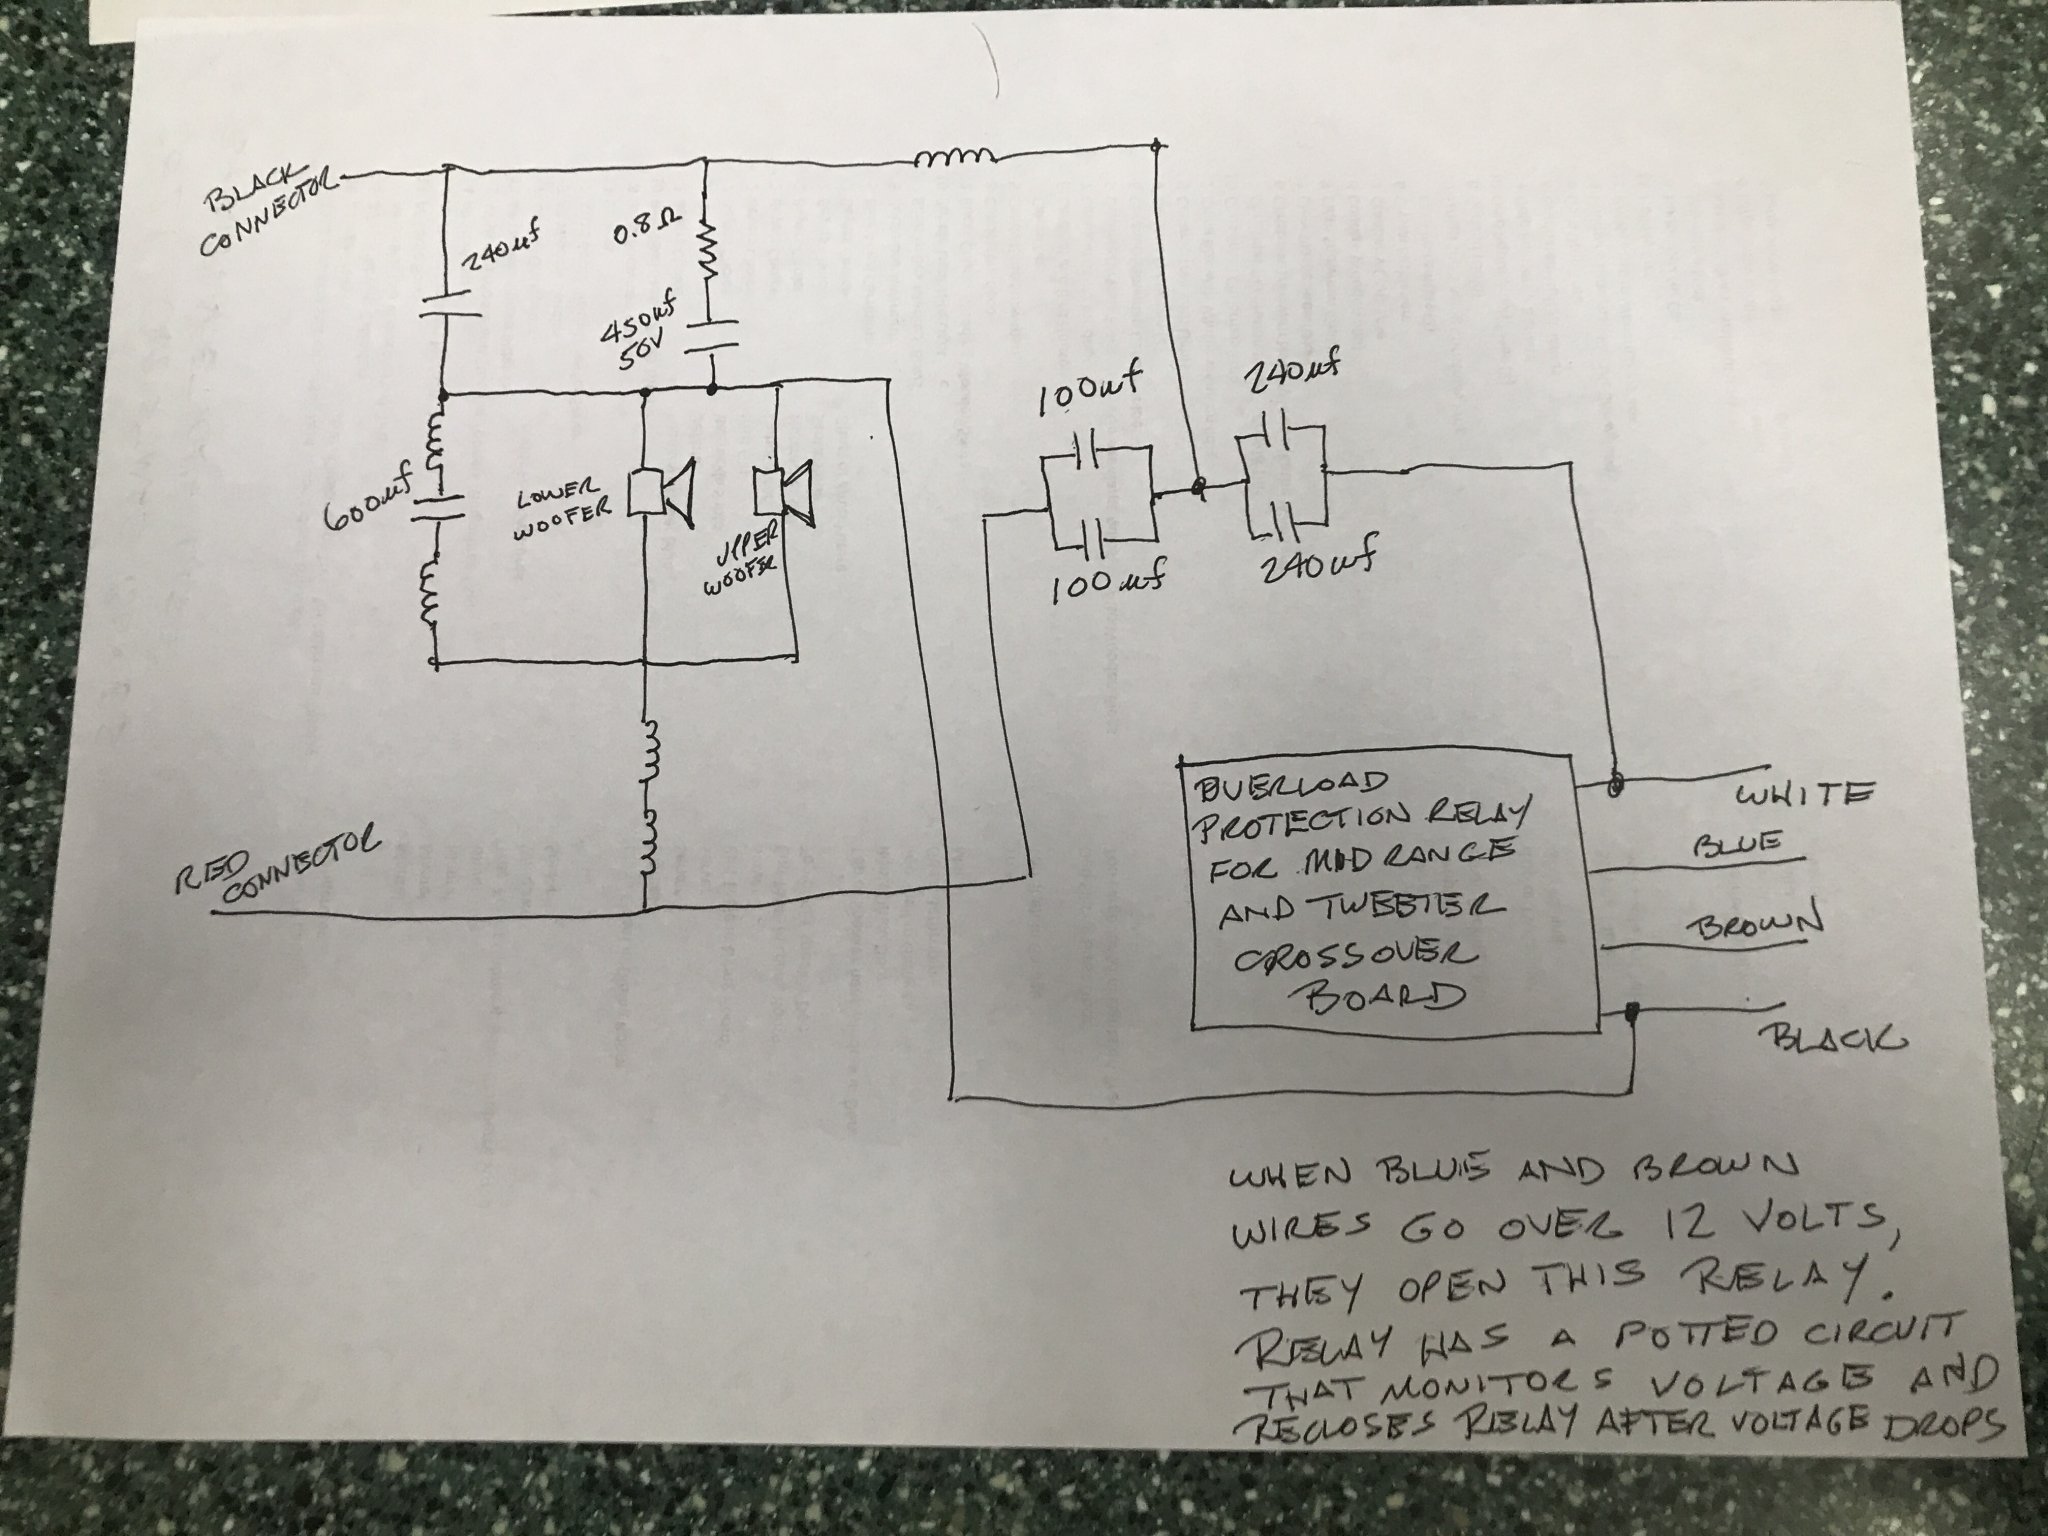 BLACK
CONNECTOR
240uf
0.8Ω
450uf
50V
600uf
LOWER
WOOFER
UPPER
WOOFER
100uf
100uf
240uf
240uf
RED
CONNECTOR
OVERLOAD
PROTECTION RELAY
FOR MIDRANGE
AND TWEETER
CROSSOVER
BOARD
WHITE
BLUE
BROWN
BLACK
WHEN BLUE AND BROWN
WIRES GO OVER 12 VOLTS,
THEY OPEN THIS RELAY.
RELAY HAS A POTTED CIRCUIT
THAT MONITORS VOLTAGE AND
RECLOSES RELAY AFTER VOLTAGE DROPS